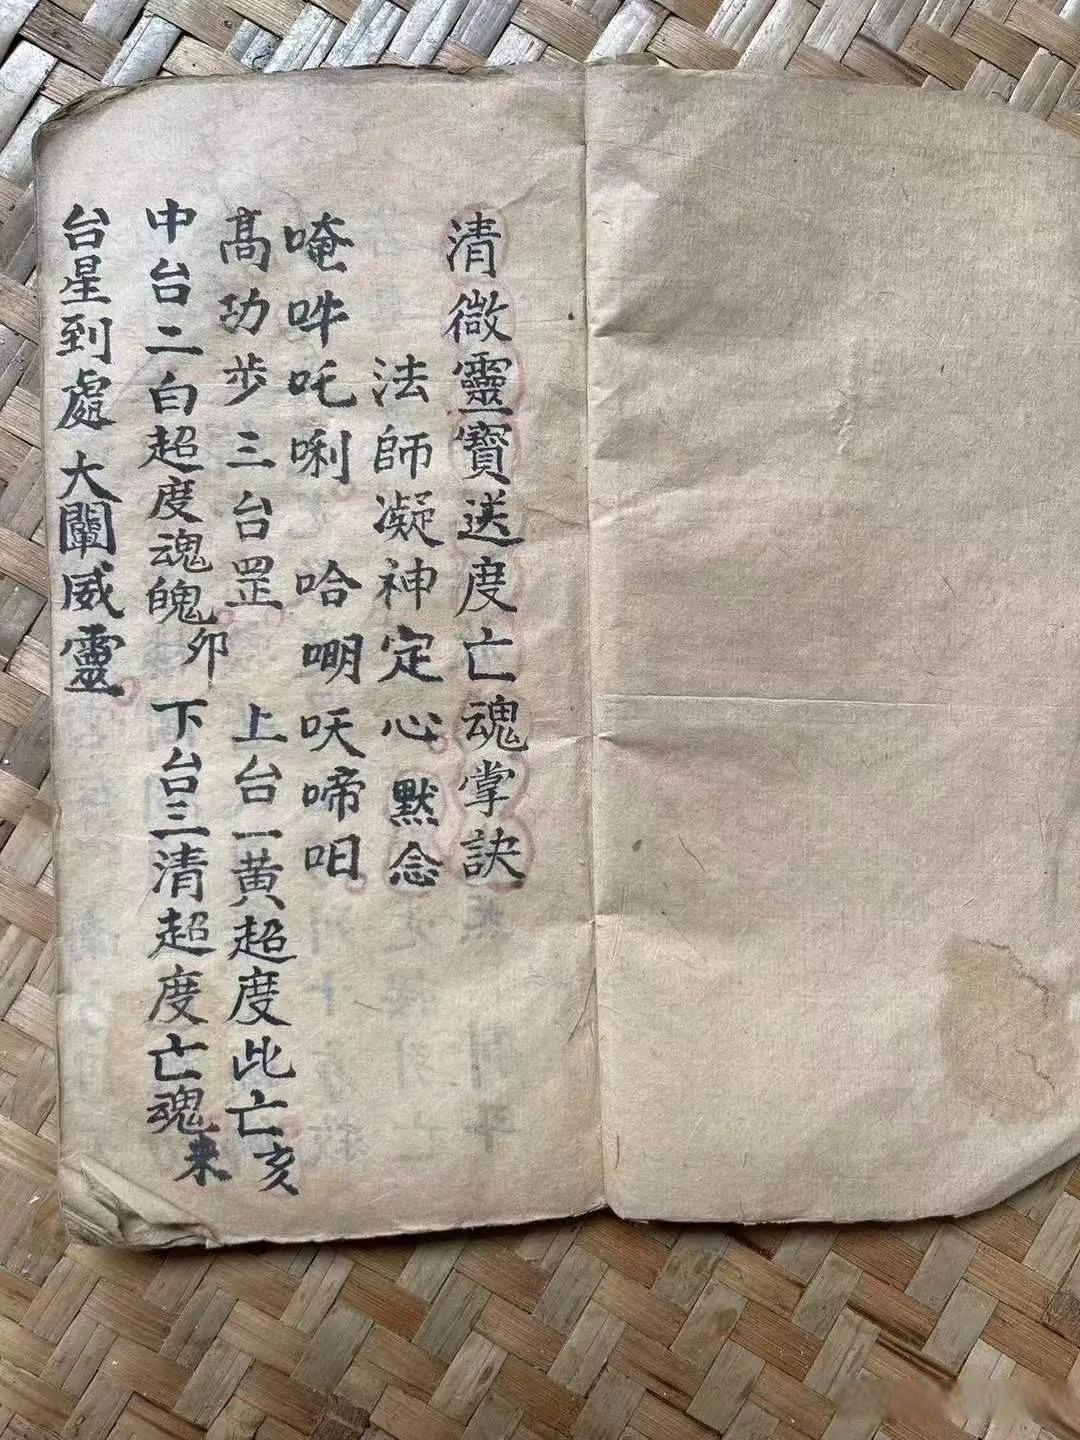 清微靈寶送度亡魂掌訣
法師凝神定心默念
唵吽吒唎 哈嘲㕭啼呬
高功步三台罡 上台一黄超度此亡亥
中台二白超度魂魄卯 下台三清超度亡魂未
台星到處 大闡威靈